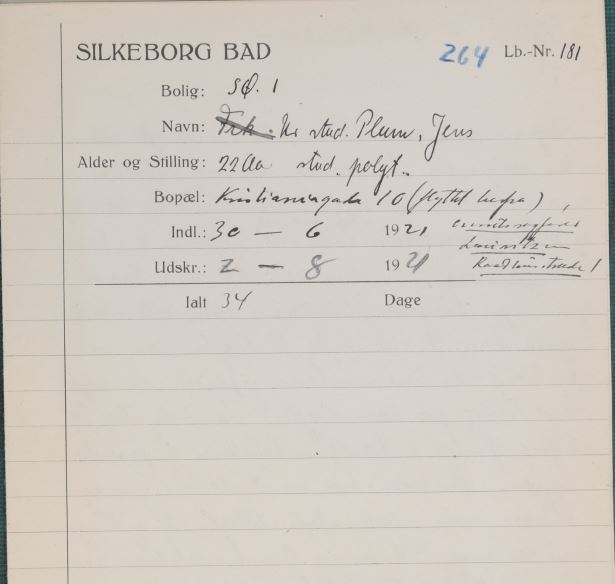 SILKEBORG BAD 264 Lb.-Nr. 181
Bolig: SØ. 1
Navn: Frk. Hr stud. Plum, Jens
Alder og Stilling: 22 Aar stud. polyt.
Bopæl: Kristianiagade 10 (flyttet herfra)
Indl.: 30 — 6 1921
Udskr.: 2 — 8 1921
Ialt 34 Dage